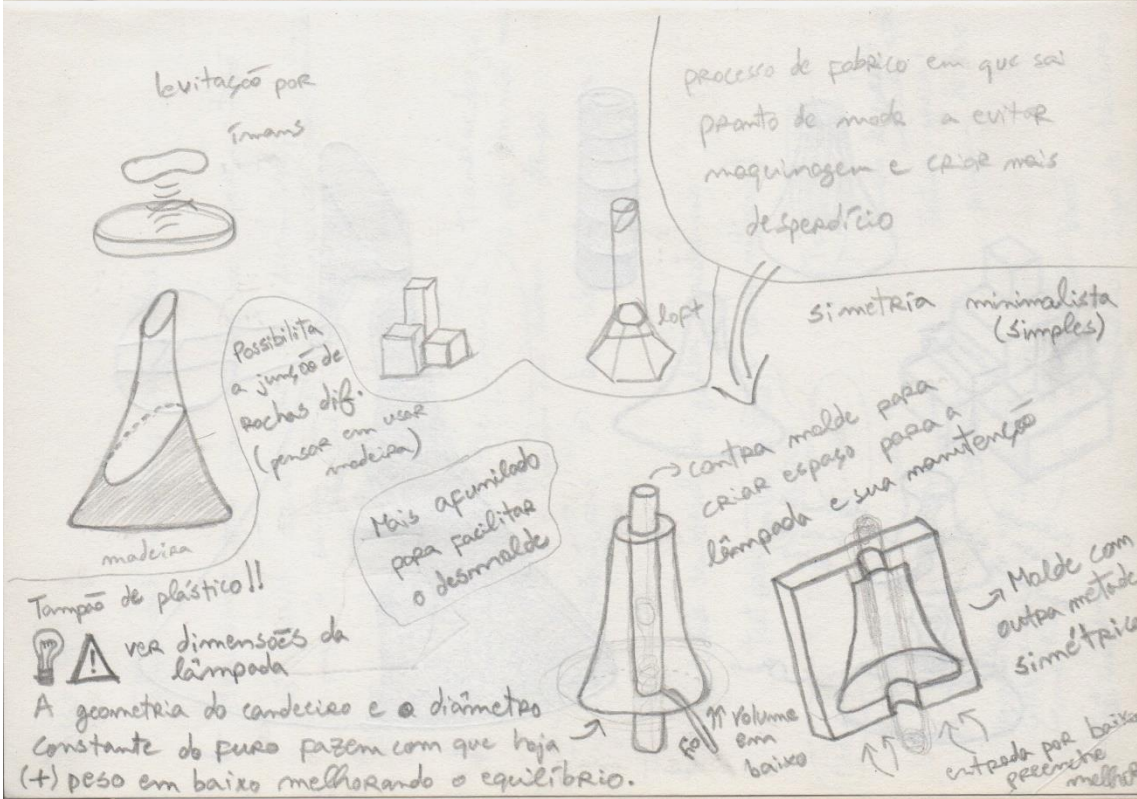 levitação por
ímans
processo de fabrico em que sai
pronto de modo a evitar
maquinagem e criar mais
desperdício
loft
simetria minimalista
(simples)
Possibilita
a junção de
Rochas dif.
(pensar em usar
madeira)
madeira
Mais afunilado
para facilitar
o desmolde
contra molde para
criar espaço para a
lâmpada e sua manutenção
Molde com
outra metade
simétrica
Tampão de plástico!!
! ver dimensões da
lâmpada
A geometria do candeeiro e o diâmetro
constante do furo fazem com que haja
(+) peso em baixo melhorando o equilíbrio.
fio
⇈ volume
em
baixo
entrada por baixo
preenche
melhor